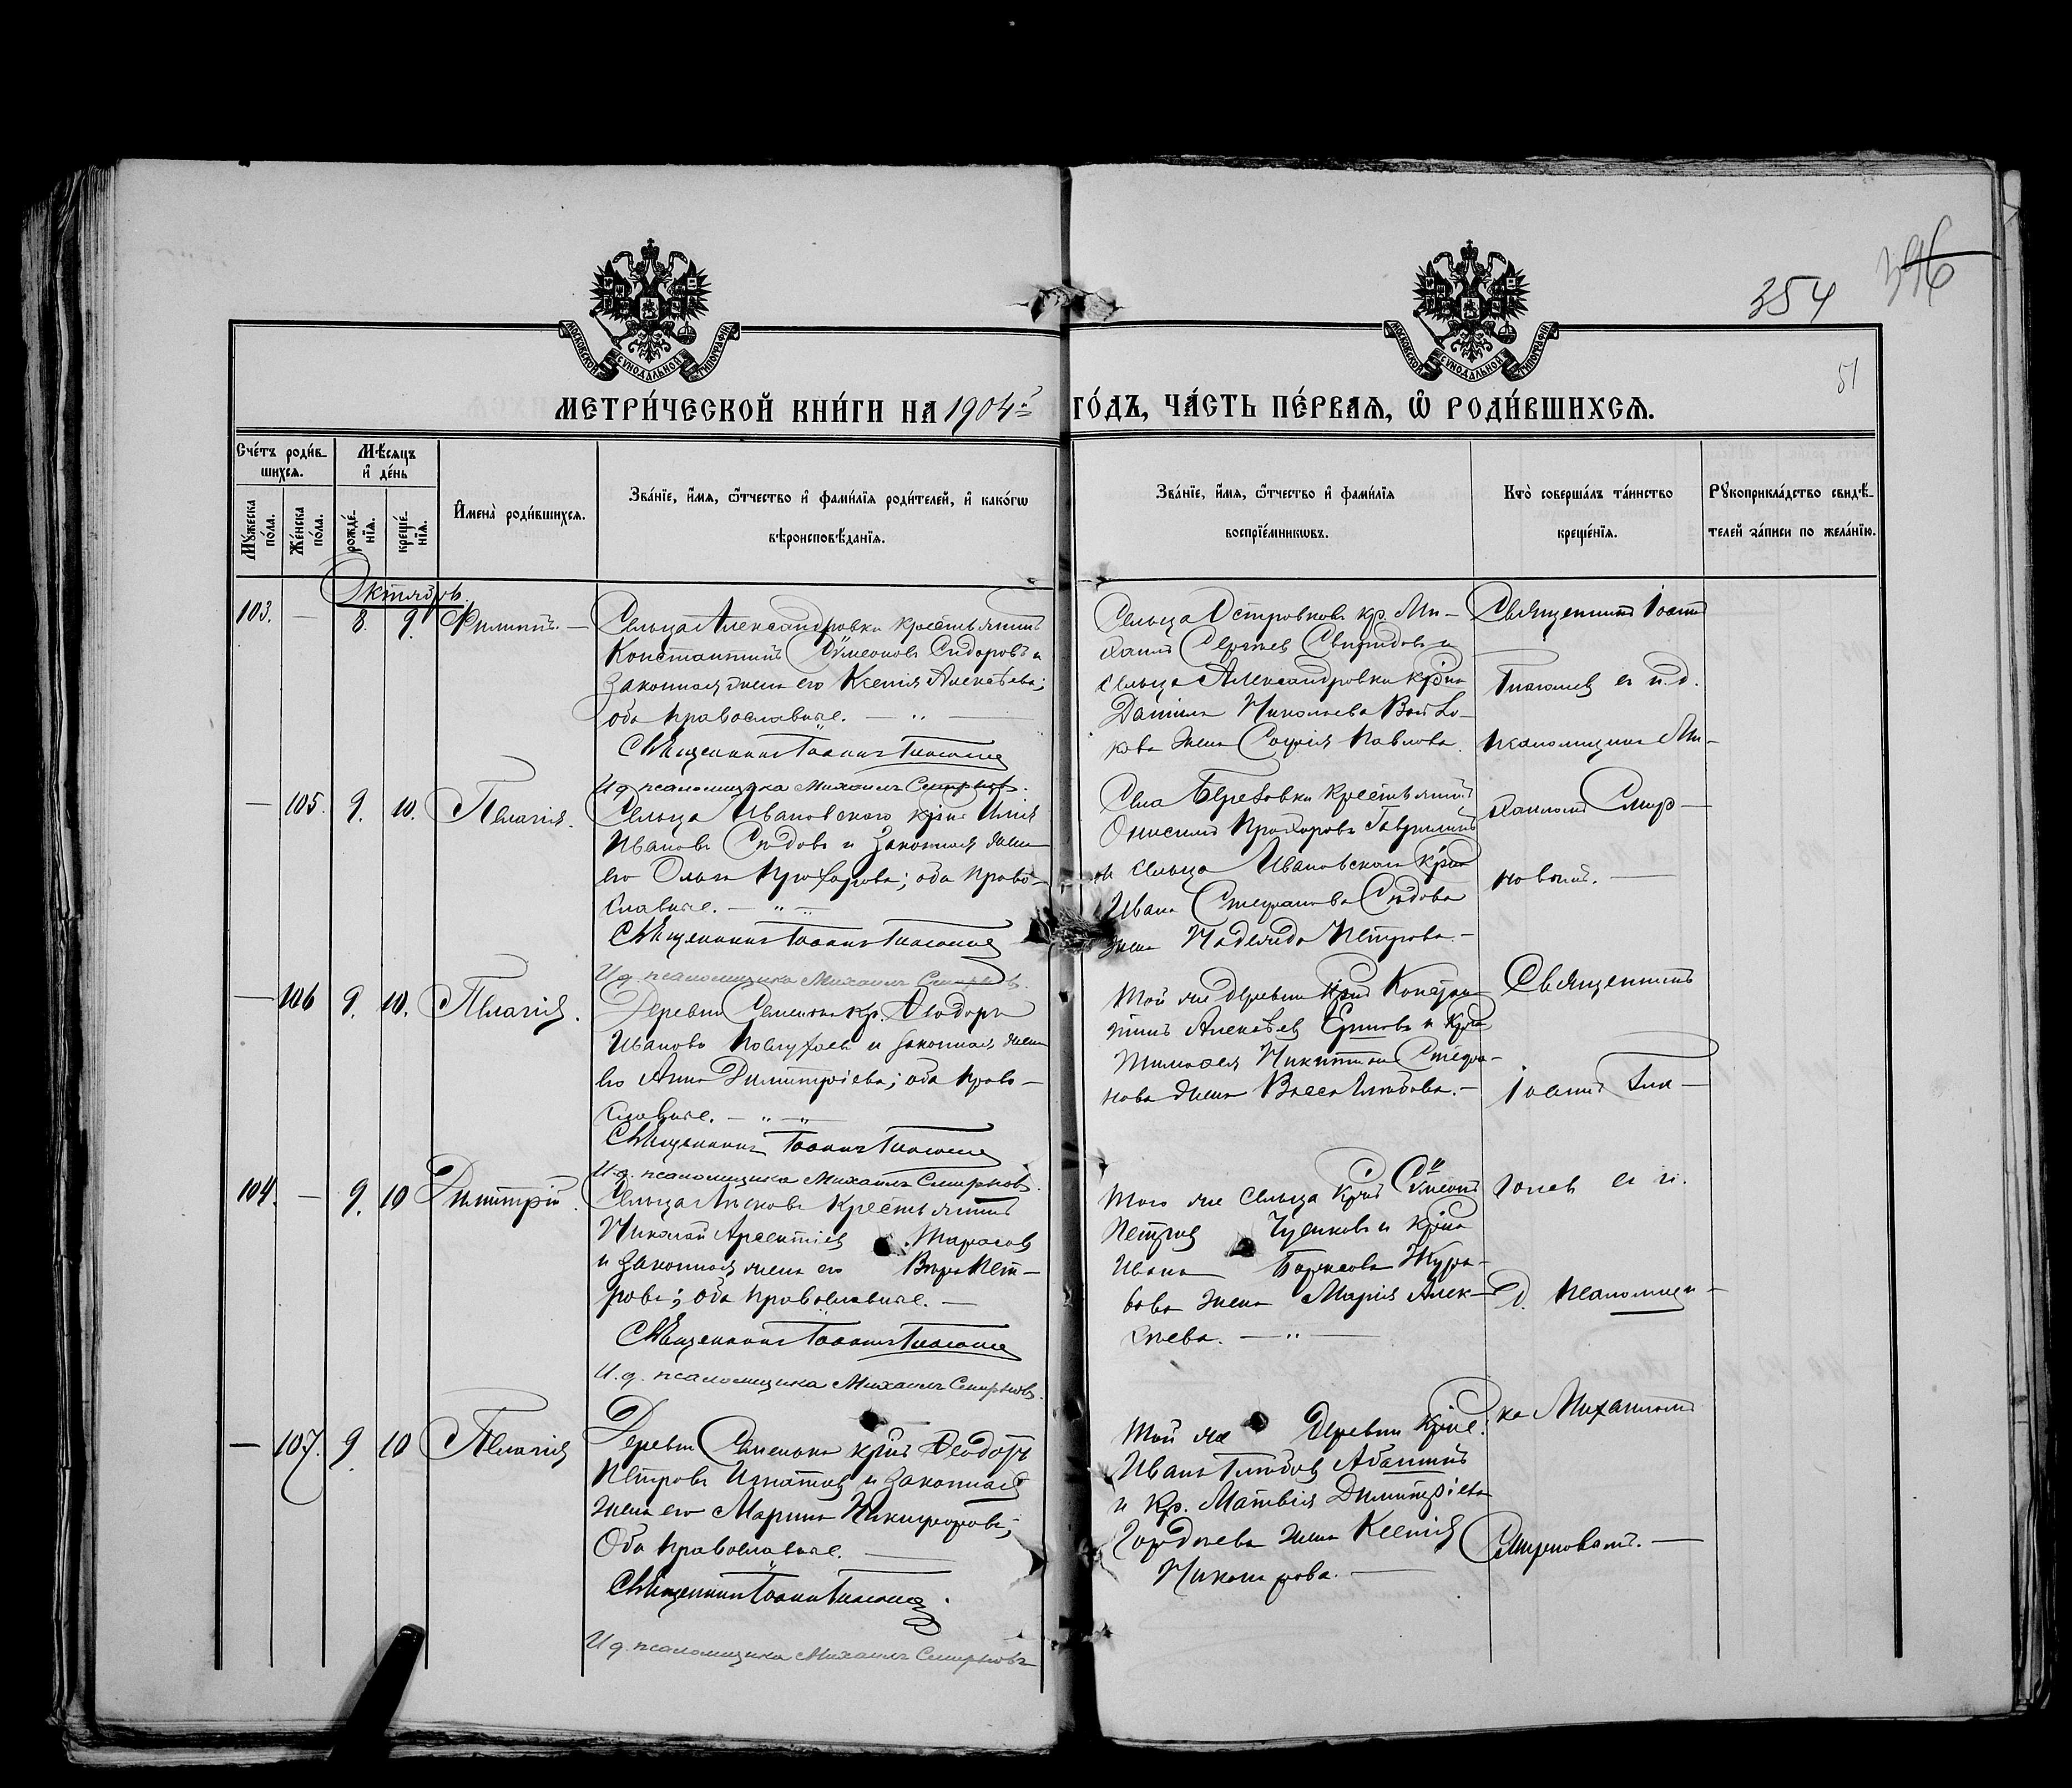 396
354
51
МОСКОВСКОЙ СѴНОДАЛЬНОЙ ТИПОГРАФІИ
МОСКОВСКОЙ СѴНОДАЛЬНОЙ ТИПОГРАФІИ
МЕТРИ́ЧЕСКОЙ КНИ́ГИ НА 1904й ГО́ДЪ, ЧА́СТЬ ПЕ́РВАѦ, Ѽ РОДИ́ВШИХСѦ.
Сче́тъ роди́в-
шихсѧ.
Мꙋ́жеска
по́ла.
Же́нска
по́ла.
Мѣ́сѧцъ
и҆ де́нь
рожде́-
нїѧ.
креще́-
нїѧ.
И҆мена̀ роди́вшихсѧ.
Зва́нїе, и҆́мѧ, ѻ҆́тчество и҆ фами́лїѧ роди́телей, и҆ како́гѡ
вѣроисповѣ́данїѧ.
Зва́нїе, и҆́мѧ, ѻ҆́тчество и҆ фами́лїѧ
воспрїе́мникѡвъ.
Кто̀ соверша́лъ та́инство
креще́нїѧ.
Рꙋкоприкла́дство свидѣ́-
телей за́писи по жела́нїю.
Октябрь.
103. — 8. 9. Филиппъ. —
Сельца Александровки крестьянинъ
Константинъ Сѵмеоновъ Сидоровъ и
законная жена его Ксенія Алексѣева;
оба православные. — „ —
Священникъ Іоаннъ
И д. псаломщика Михаилъ Смирновъ.
Сельца Островковъ кр. Ми-
хаилъ Сергѣевъ Свиридовъ и
сельца Александровки кр-на
Даніила Николаева
жена Софія Павлова.
Священникъ Іоаннъ
съ и. д.
псаломщика Ми-
— 105. 9. 10. Пелагія.
Сельца Ивановскаго кр-нъ Илія
Ивановъ Сѣдовъ и законная жена
его Ольга Прохорова; оба право-
славные. — „ —
Священникъ Іоаннъ
И д. псаломщика Михаилъ Смирновъ.
Села Березовки крестьянинъ
Онисимъ Прохоровъ Гаврилинъ
и сельца Ивановскаго кр-на
Ивана Стефанова Сѣдова
жена Надежда Петрова. —
хаиломъ Смир-
новымъ. —
— 106 9. 10. Пелагія.
Деревни Семенова кр. Ѳеодоръ
Ивановъ и законная жена
его Анна Димитріева; оба право-
славные. — „ —
Священникъ Іоаннъ
И. д. псаломщика Михаилъ Смирновъ.
Той же деревни кр-нъ Констан-
тинъ Алексѣевъ Ершовъ и кр-на
Тимоѳея Никитина Стефа-
нова жена Васса Глѣбова. —
Священникъ
Іоаннъ
104. — 9. 10 Димитрій.
Сельца крестьянинъ
Николай Арсентіевъ Тарасовъ
и законная жена его Вѣра Пет-
рова; оба православные. —
Священникъ Іоаннъ
И. д. псаломщика Михаилъ Смирновъ.
Того же сельца кр-нъ Сѵмеонъ
Петровъ и кр-на
Ивана Борисова Жура-
вова жена Марія Алек-
сѣева. — „ —
съ и.
д. псаломщи-
— 107. 9. 10 Пелагія
Деревни Семенова кр-нъ Ѳеодоръ
Петровъ Игнатовъ и законная
жена его Марина Никифорова;
оба православные. —
Священникъ Іоаннъ
И д. псаломщика Михаилъ Смирновъ
Той же деревни кр-не:
Иванъ Глѣбовъ Абашинъ
и кр. Матвія Димитріева
Гордѣева жена Ксенія
ка Михаиломъ
Смирновымъ. —